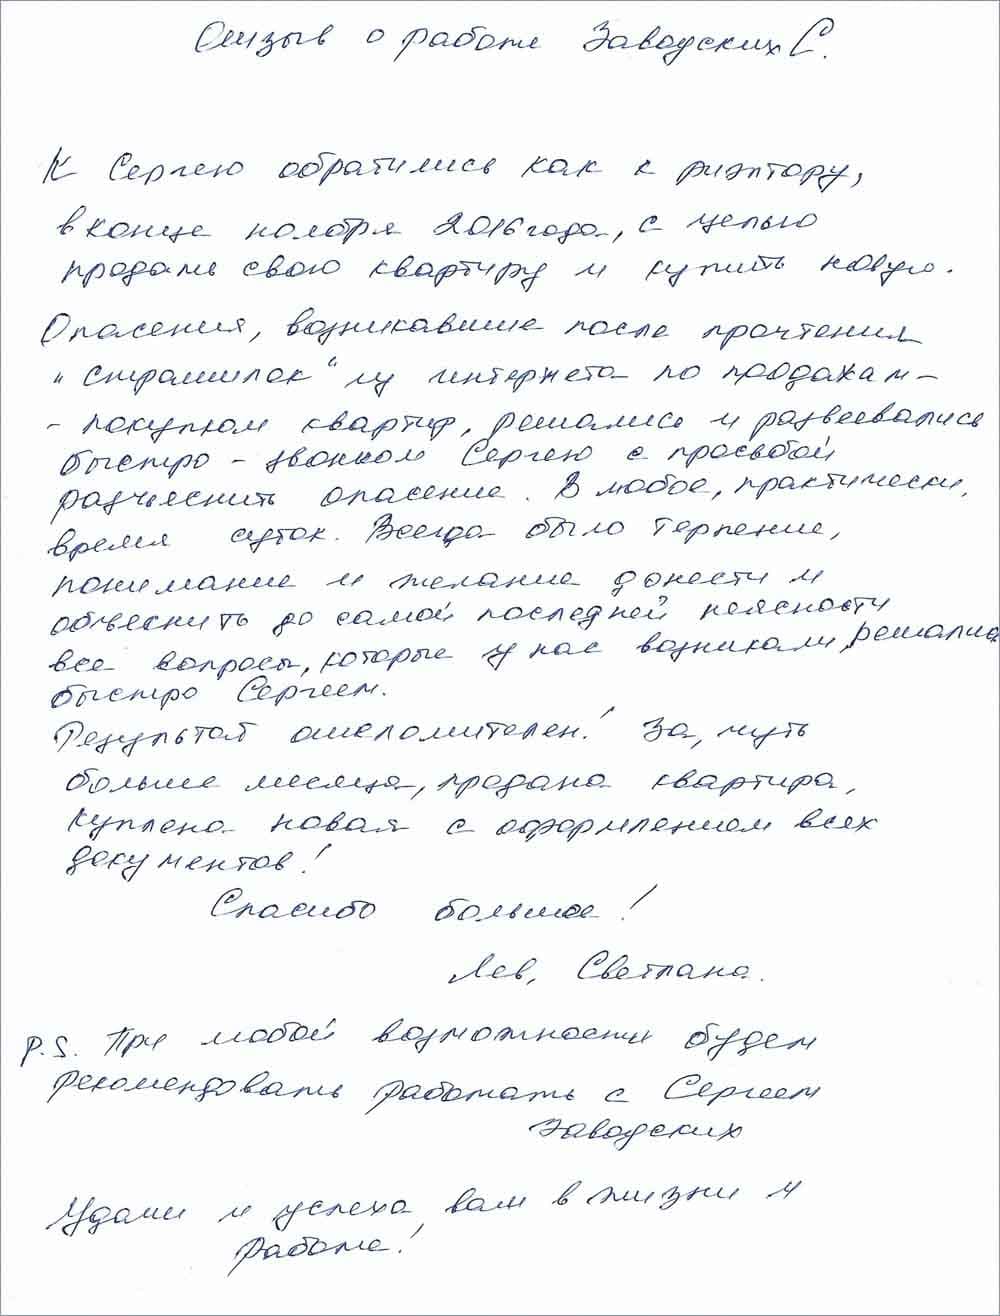 Отзыв о работе Заводских С.
К Сергею обратились как к риэлтору,
в конце ноября 2016 года, с целью
продать свою квартиру и купить новую.
Опасения, возникавшие после прочтения
"страшилок" из интернета по продажам-
- покупкам квартир, решались и развеевались
быстро - звонком Сергею с просьбой
разъяснить опасение. В любое, практически,
время суток. Всегда было терпение,
понимание и желание донести и
объяснить до самой последней неясности
все вопросы, которые у нас возникали, решались
быстро Сергеем.
Результат ошеломителен! За, чуть
больше месяца, продана квартира,
куплена новая с оформлением всех
документов!
Спасибо большое!
Лев, Светлана.
P.S. При любой возможности будем
рекомендовать работать с Сергеем
Заводских
Удачи и успеха вам в жизни и
работе!